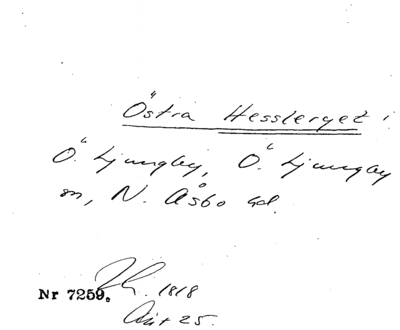 Östra Hessleryet i
Ö. Ljungby, Ö. Ljungby
sn, N. Åsbo hd.
Nr 7259. 1818
25.